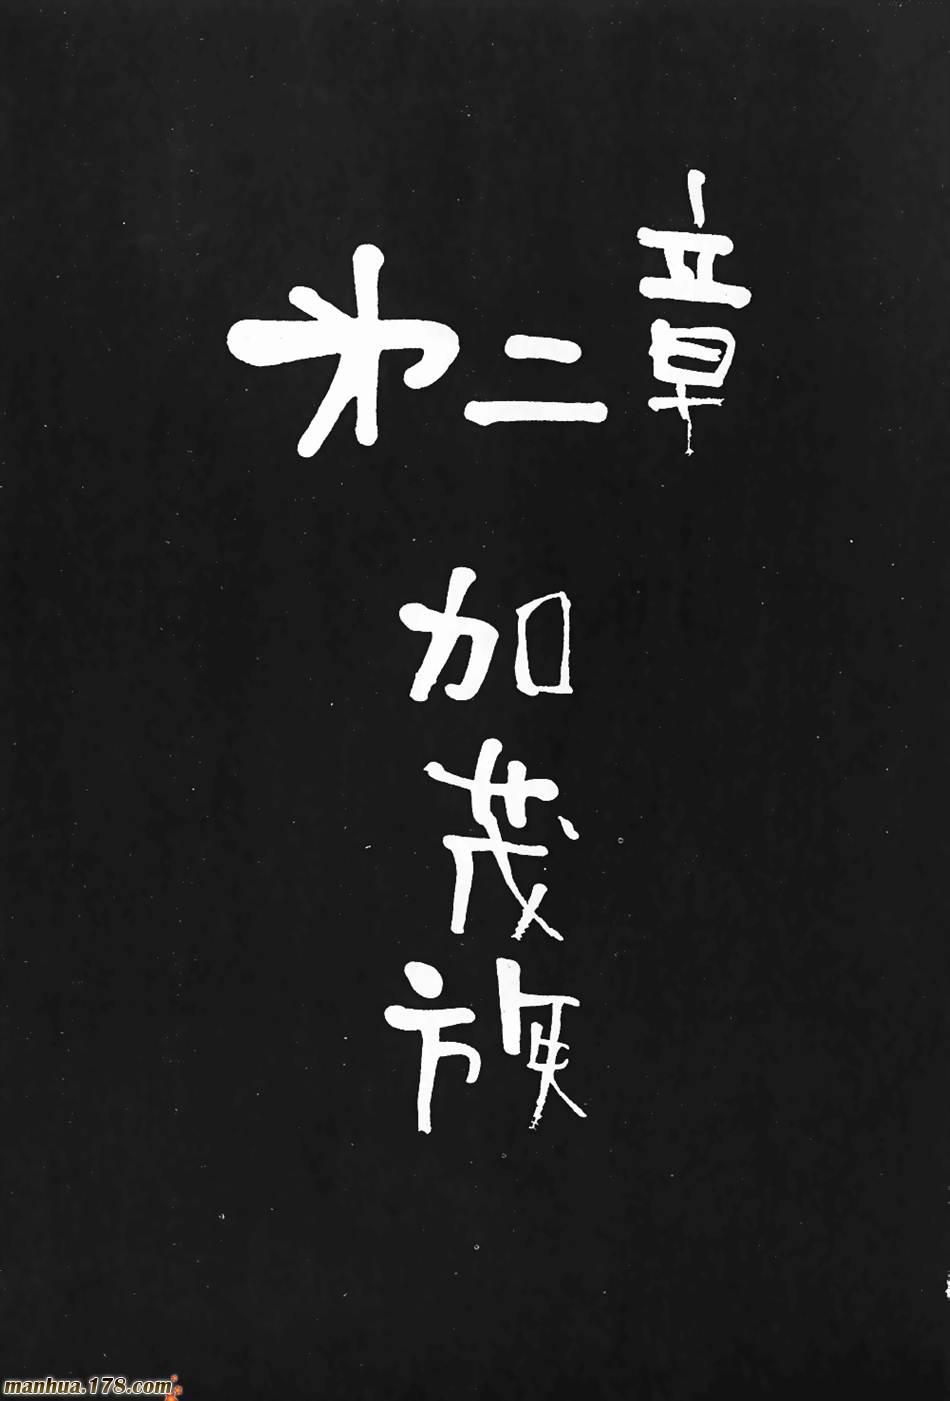 第二章
加茂族
manhua.178.com